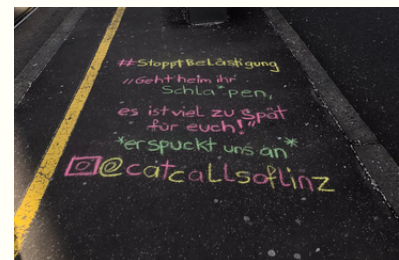 #StopptBelästigung
"Geht heim ihr
Schla*pen,
es ist viel zu spät
für euch!"
*er spuckt uns an*
@catcallsoflinz